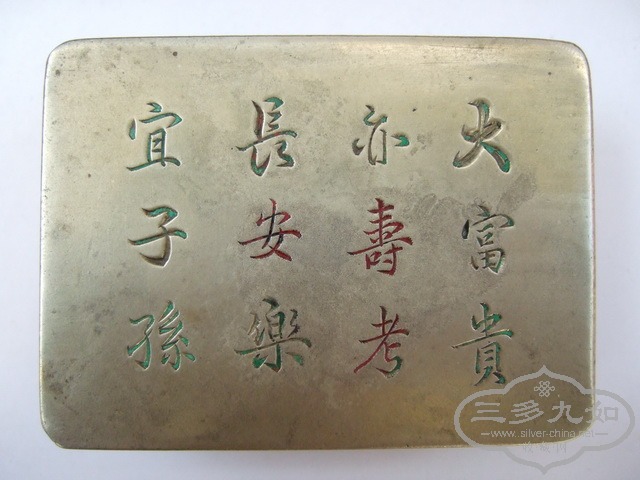 大富貴
亦壽考
長安樂
宜子孫
三多九如
www.silver-china.net
收藏网